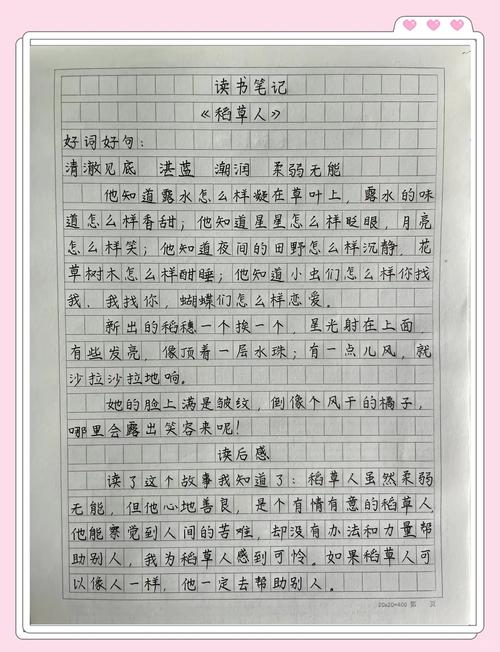 读书笔记
《稻草人》
好词好句：
清澈见底 湛蓝 潮润 柔弱无能
他知道露水怎么样凝在草叶上，露水的味
道怎么样香甜；他知道星星怎么样眨眼，月亮
怎么样笑；他知道夜间的田野怎么样沉静，花
草树木怎么样酣睡；他知道小虫们怎么样你找
我、我找你，蝴蝶们怎么样恋爱。
新出的稻穗一个挨一个，星光射在上面，
有些发亮，像顶着一层水珠；有一点儿风，就
沙拉沙拉地响。
她的脸上满是皱纹，倒像个风干的橘子，
哪里会露出笑容来呢！
读后感
读了这个故事我知道了：稻草人虽然柔弱
无能，但他心地善良，是个有情有意的稻草人
他能察觉到人间的苦难，却没有办法和力量帮
助别人，我为稻草人感到可怜。如果稻草人可
以像人一样，他一定去帮助别人。
20x20=400 第 页